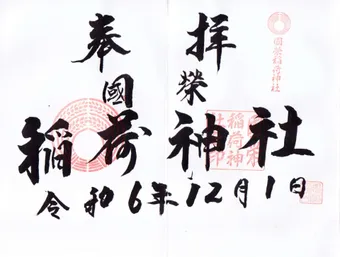 奉拝
國榮
稲荷神社
令和6年12月1日
國榮稲荷神社
稲荷神
社印